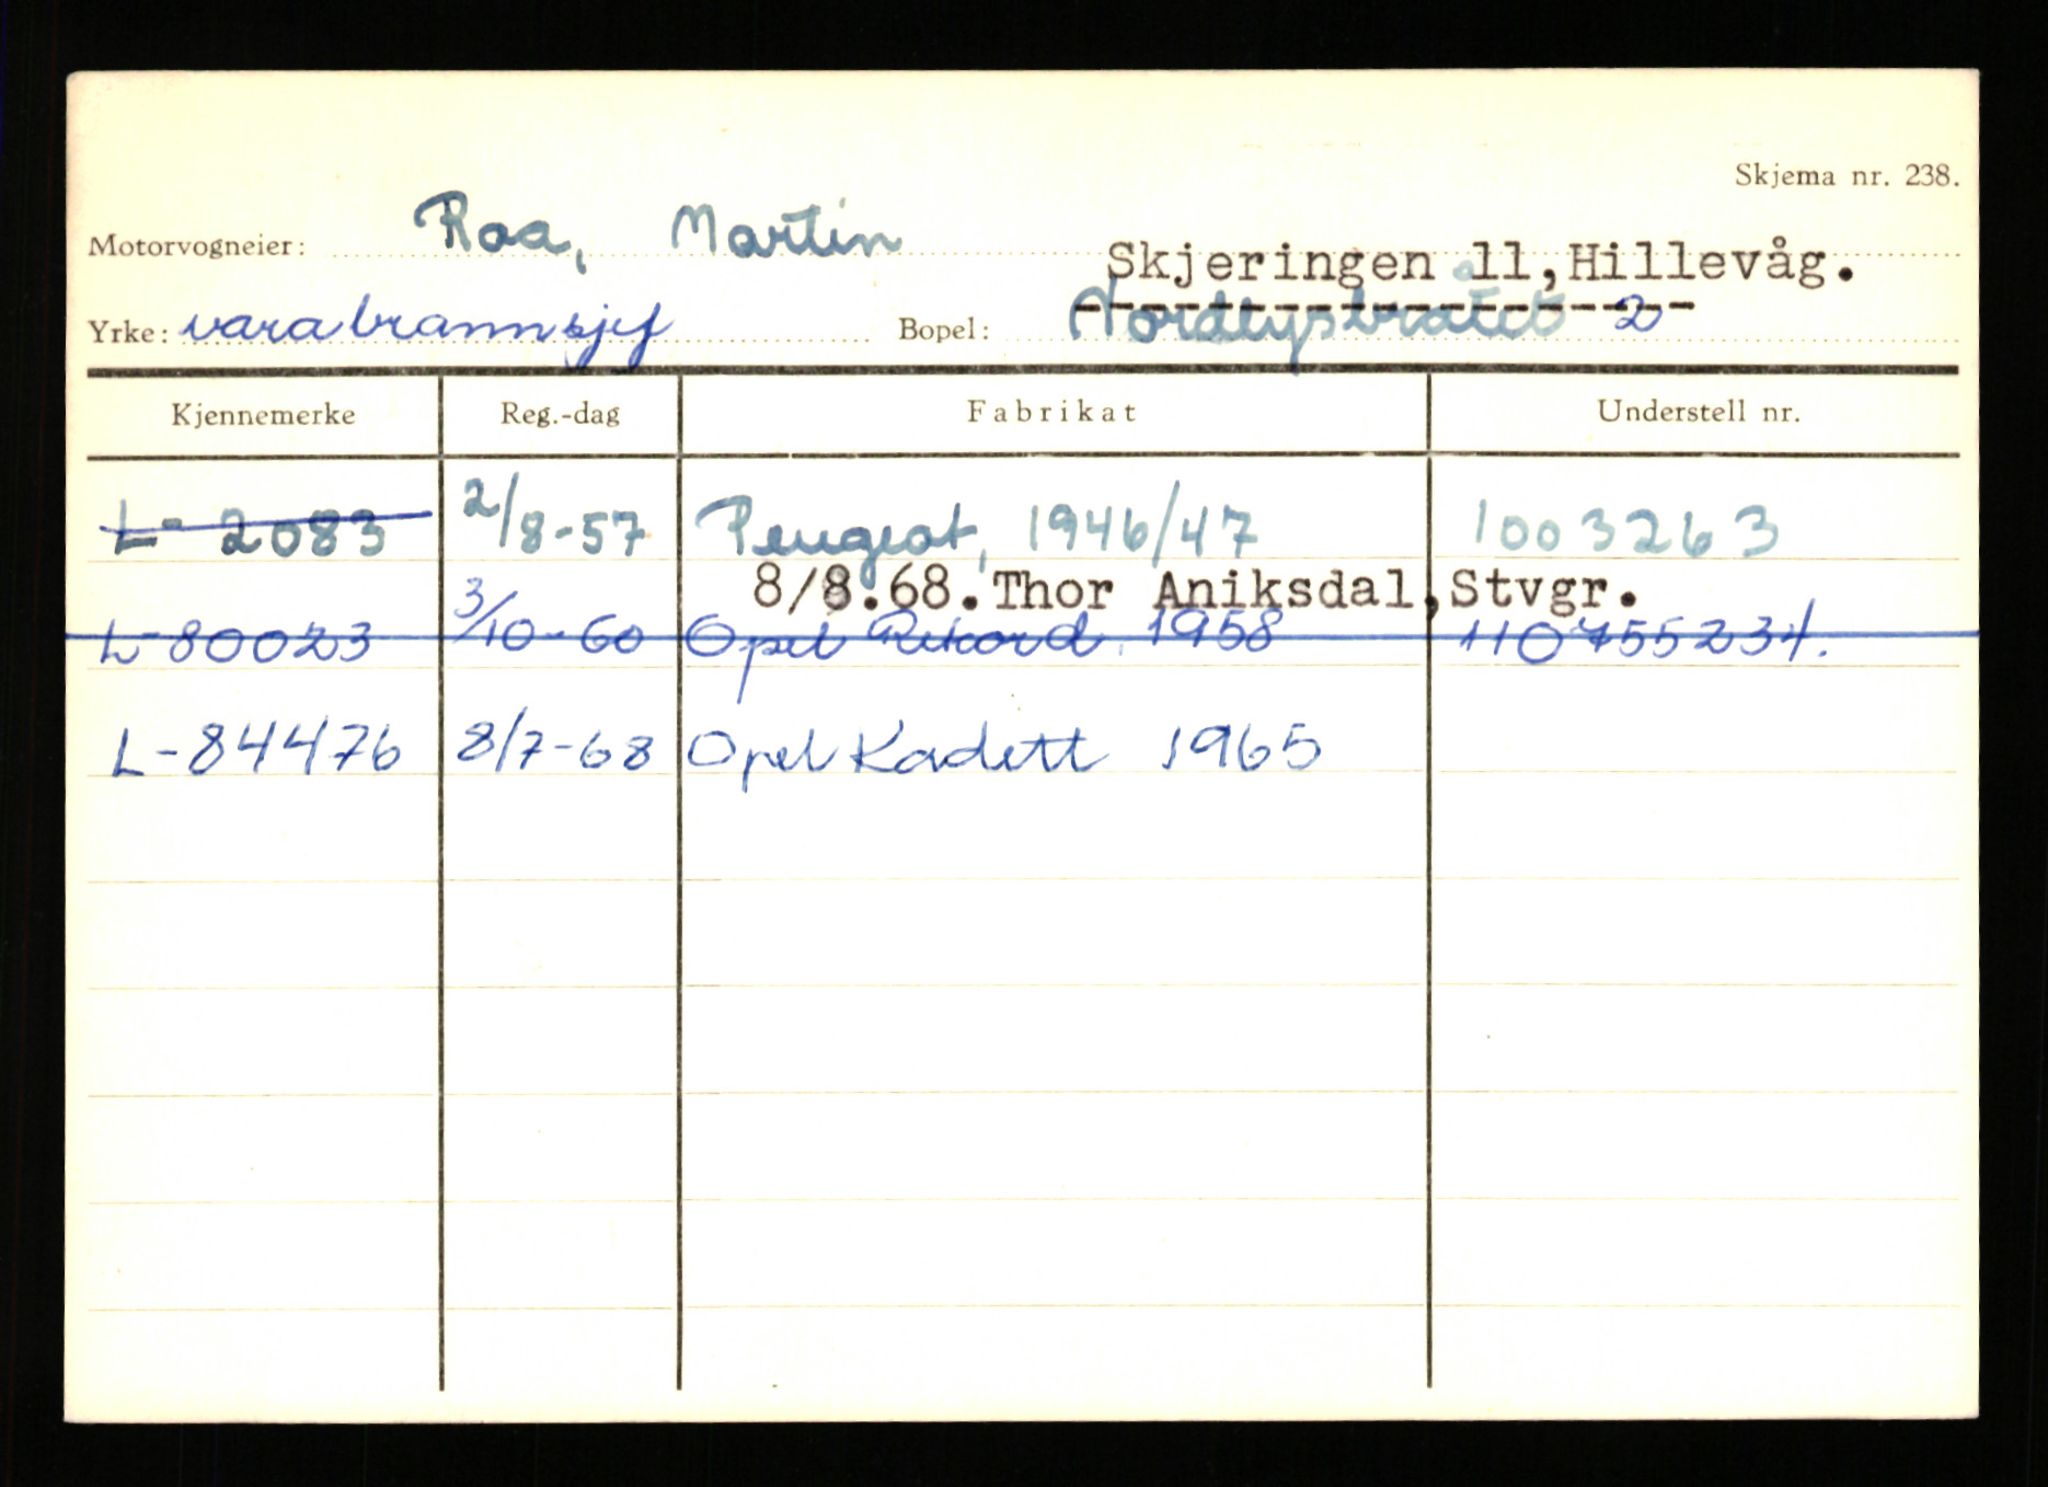 Skjema nr. 238.
Motorvogneier: Roa, Martin
Skjeringen 11, Hillevåg.
Yrke: varabrannsjef Bopel: 2
Kjennemerke Reg.-dag Fabrikat Understell nr.
L- 2083 2/8-57 Peugeot, 1946/47 1003263
8/8.68. Thor Aniksdal, Stvgr.
L-80023 3/10-60 Opel Rekord 1958 110755234.
L-84476 8/7-68 Opel Kadett 1965